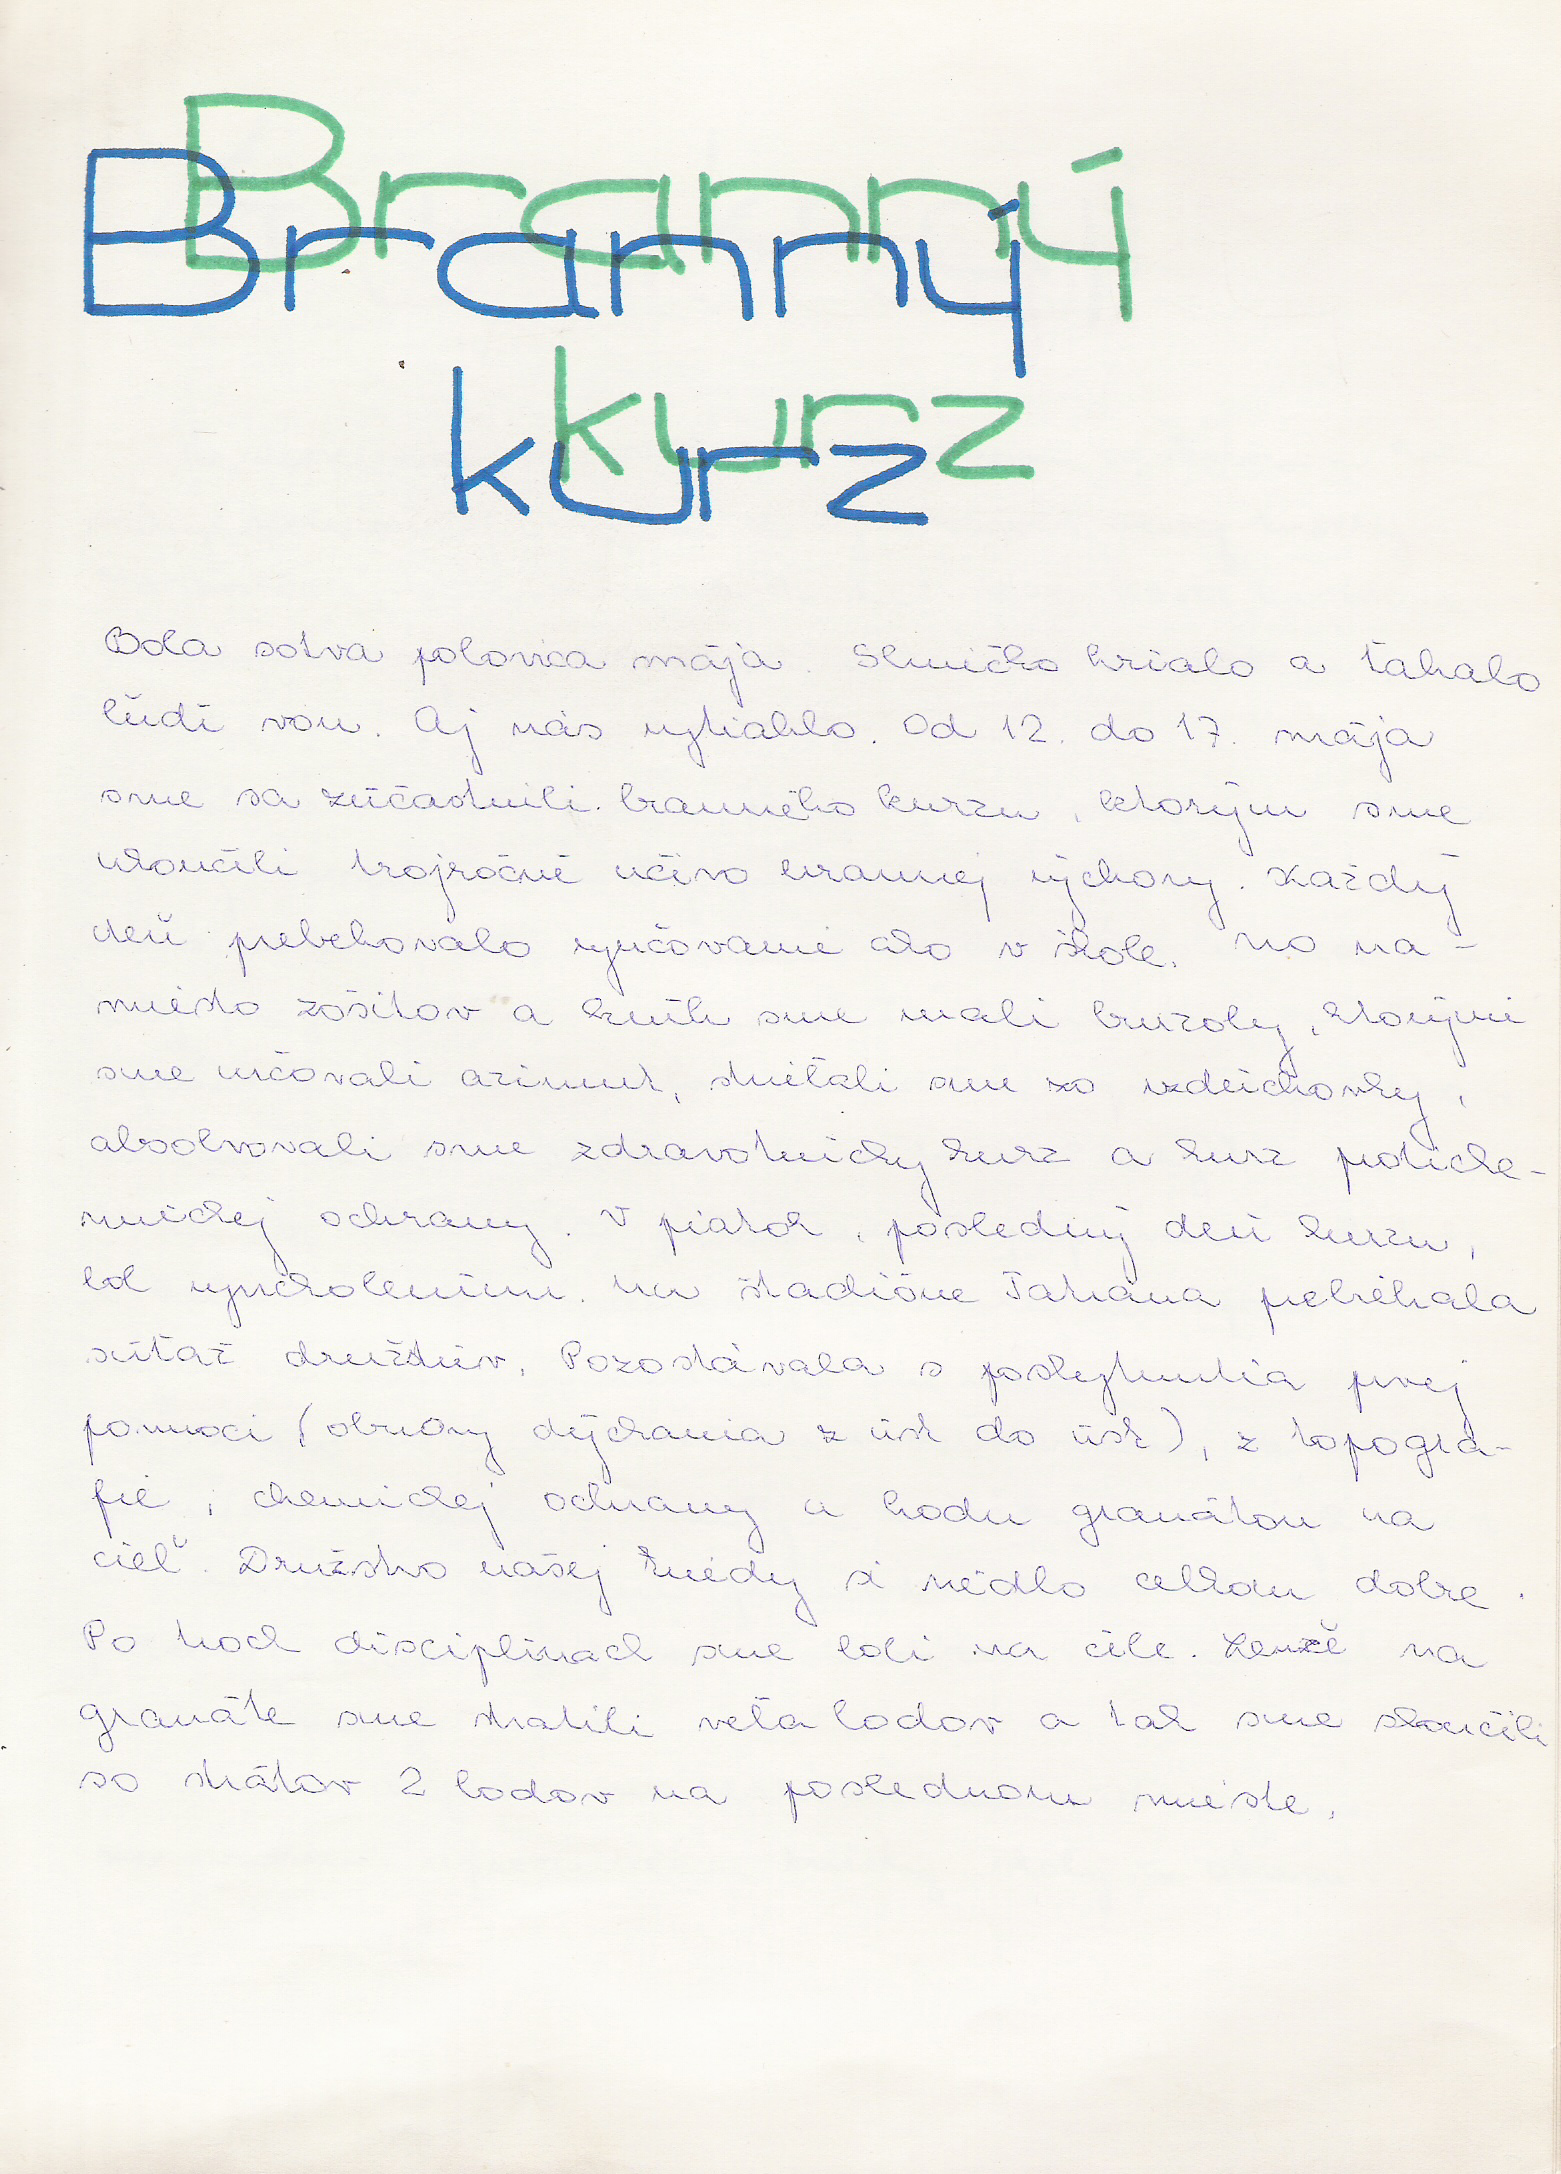 Branný
kurz
Bola sotva polovica mája. Slniečko hrialo a ťahalo
ľudí von. Aj nás vytiahlo. Od 12. do 17. mája
sme sa zúčastnili branného kurzu, ktorým sme
ukončili trojročné učivo brannej výchovy. Každý
deň prebehovalo vyučovanie ako v škole. No na-
miesto zošitov a kníh sme mali buzoly, ktorými
sme určovali azimut, strieľali sme zo vzduchovky,
absolvovali sme zdravotnícky kurz a kurz protiche-
mickej ochrany. V piatok, posledný deň kurzu,
bol vyvrcholením. Na štadióne Tatrana prebiehala
súťaž družstiev. Pozostávala s poskytnutia prvej
pomoci (obväzy dýchania z úst do úst), z topogra-
fie, chemickej ochrany a hodu granátom na
cieľ. Družstvo našej triedy si viedlo celkom dobre.
Po troch disciplínach sme boli na čele. Lenže na
granáte sme stratili veľa bodov a tak sme skončili
so stratov 2 bodov na poslednom mieste.